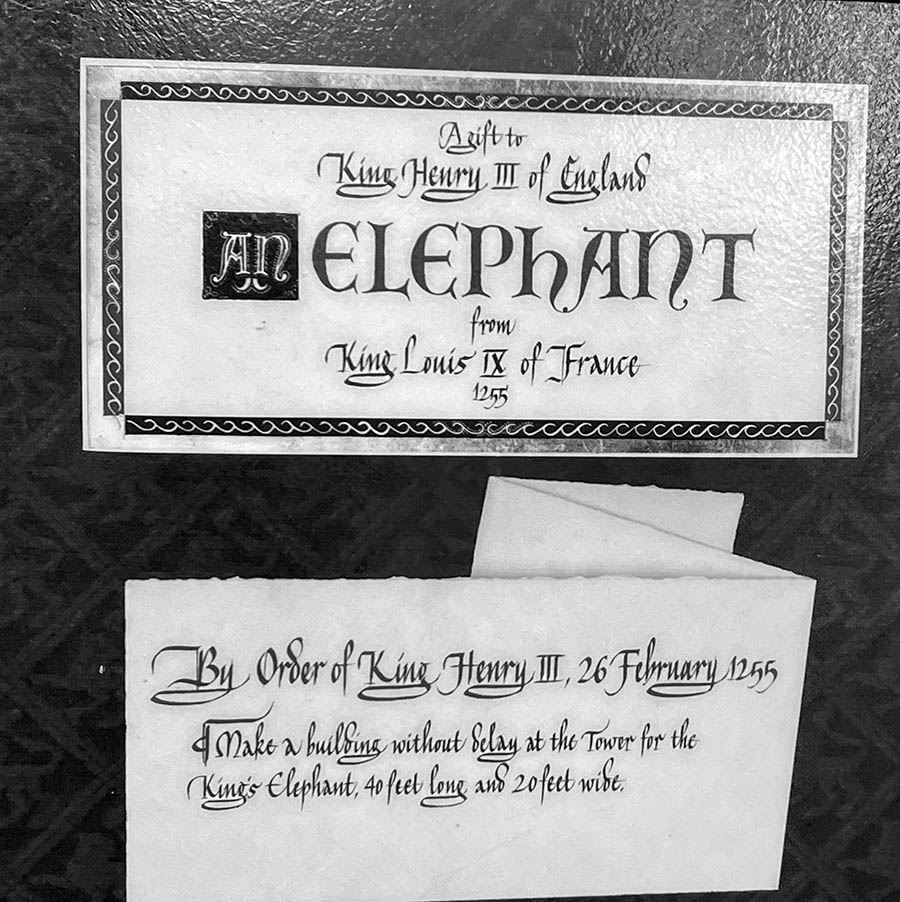 A gift to
King Henry III of England
AN ELEPHANT
from
King Louis IX of France
1255
By Order of King Henry III, 26 February 1255
¶ Make a building without delay at the Tower for the
King's Elephant, 40 feet long and 20 feet wide.